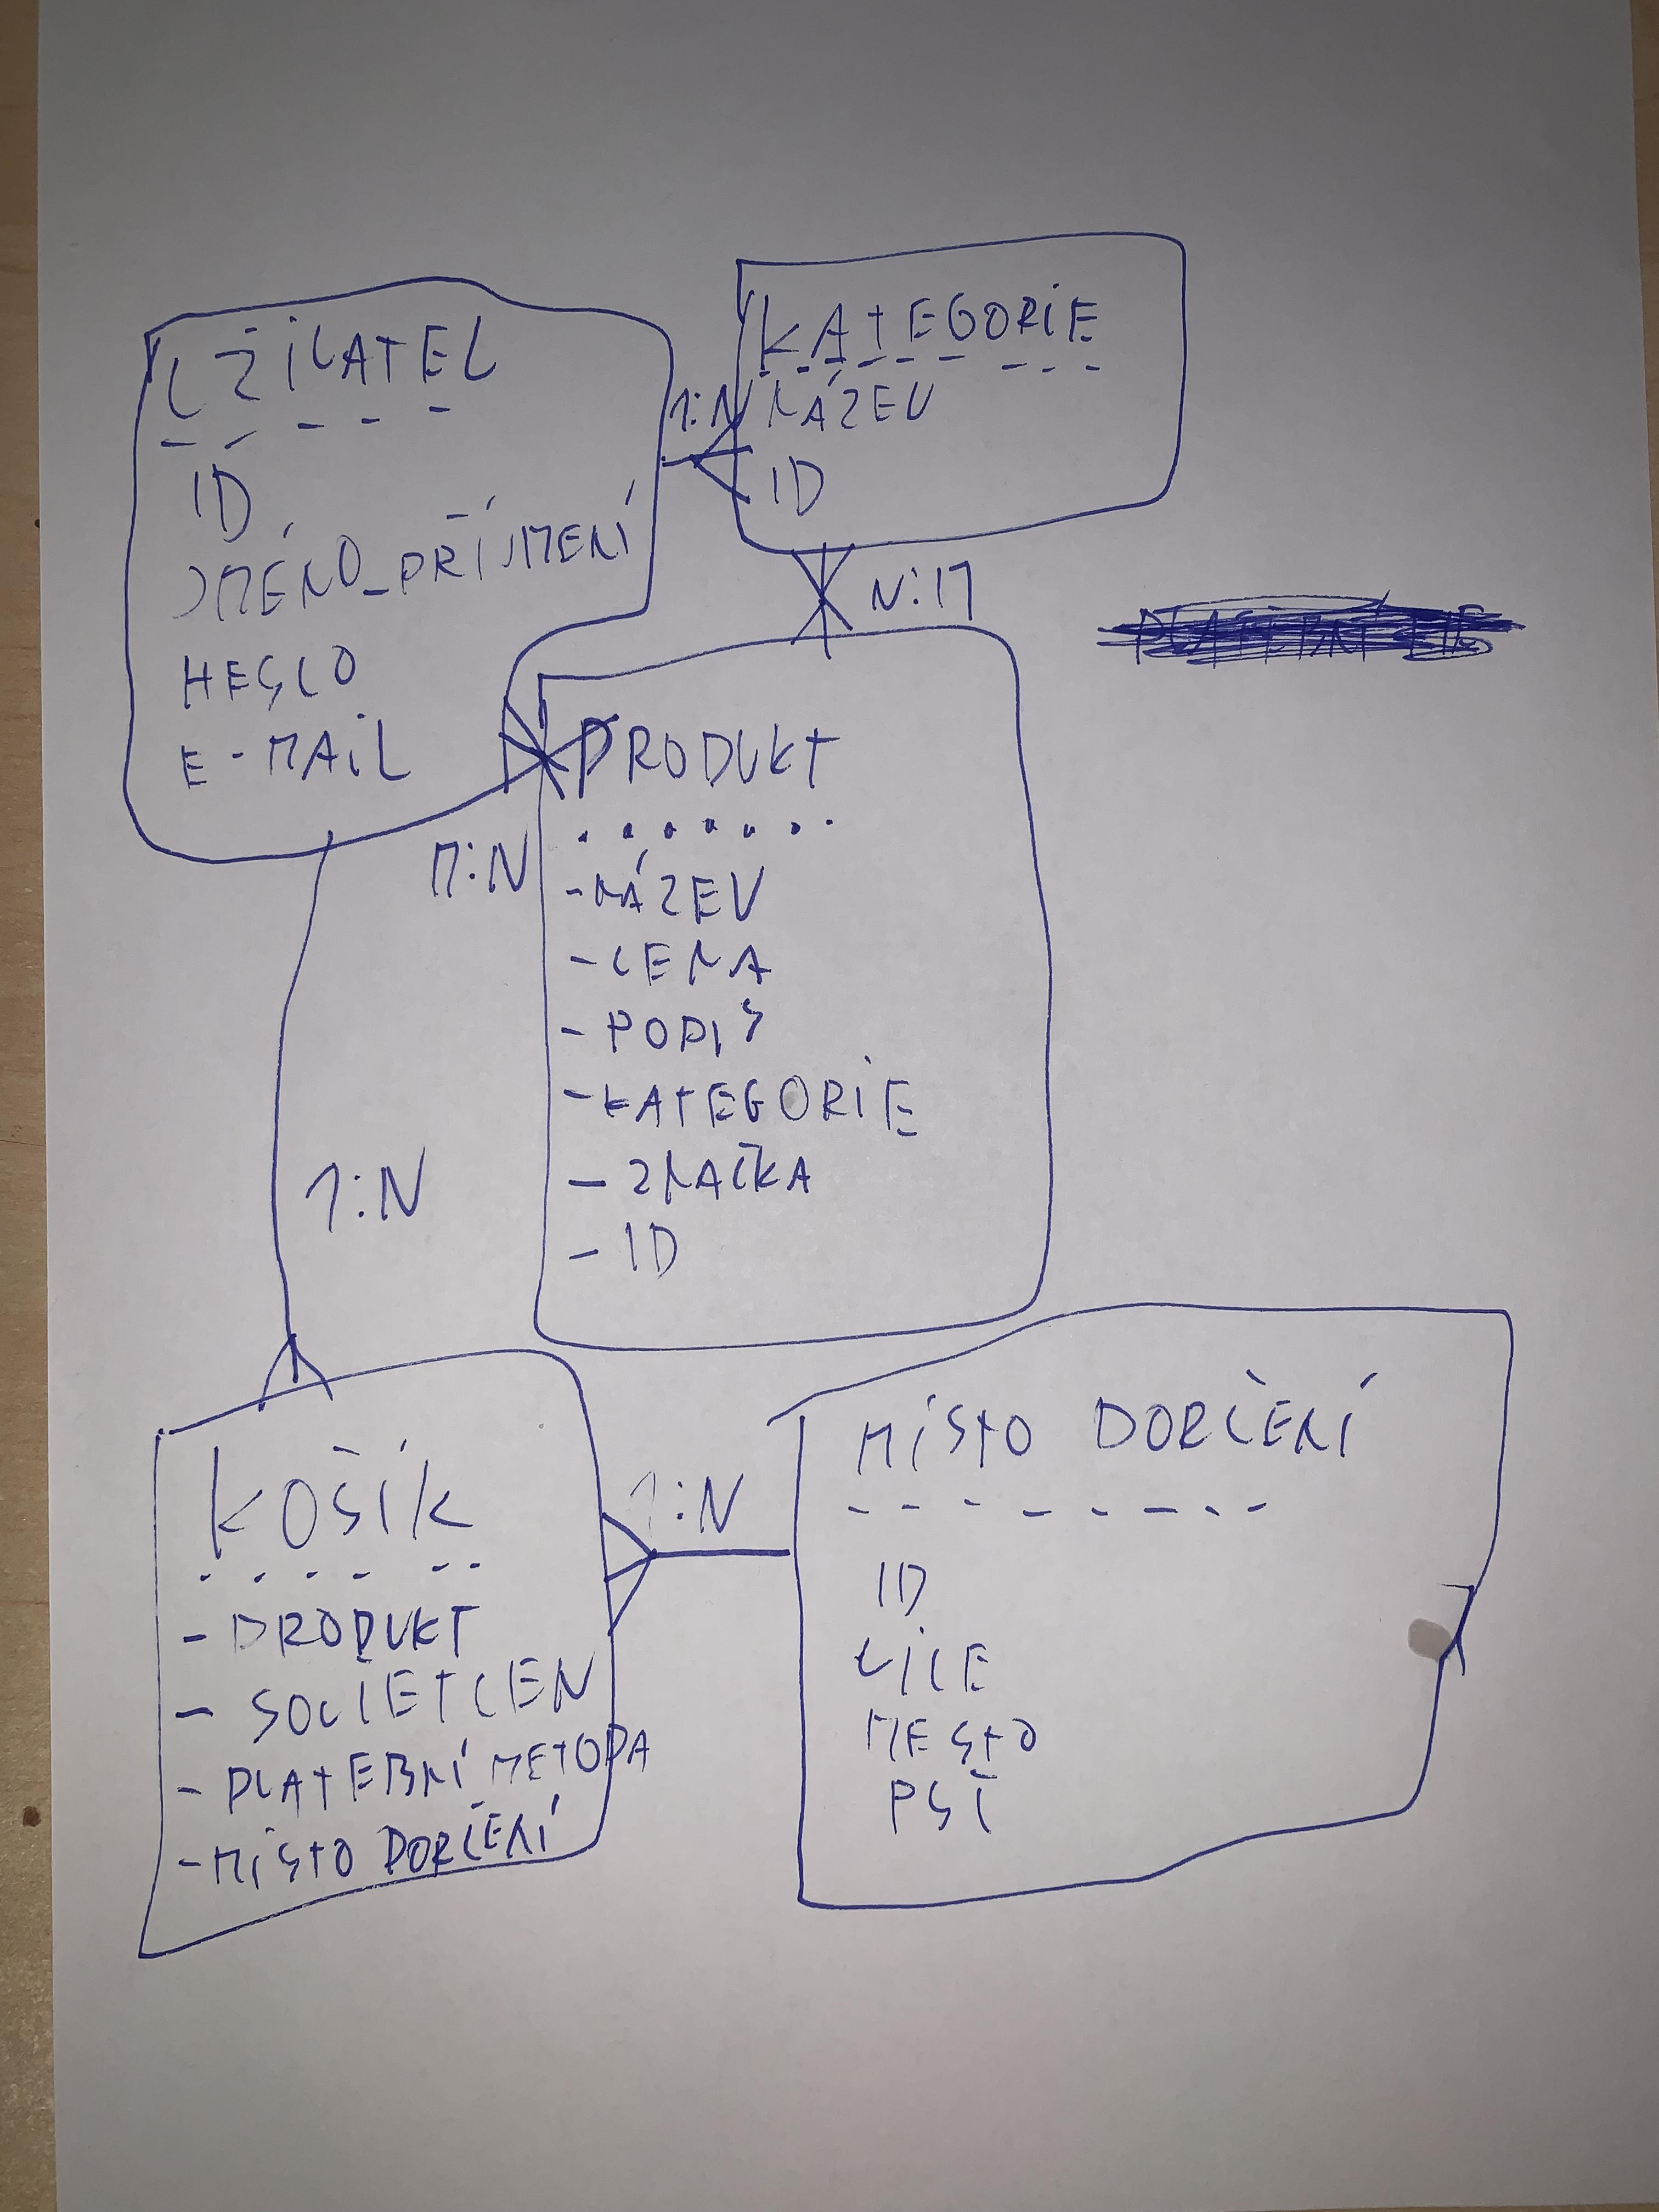 UŽIVATEL
ID
JMÉNO_PŘÍJMENÍ
HESLO
E-MAIL
1:N
KATEGORIE
NÁZEV
ID
N:M
M:N
PRODUKT
-NÁZEV
-CENA
-POPIS
-KATEGORIE
-ZNAČKA
-ID
1:N
KOŠÍK
-PRODUKT
-SOUČETCEN
-PLATEBNÍ METODA
-MÍSTO DORČENÍ
1:N
MÍSTO DORČENÍ
ID
ULICE
MESTO
PSČ